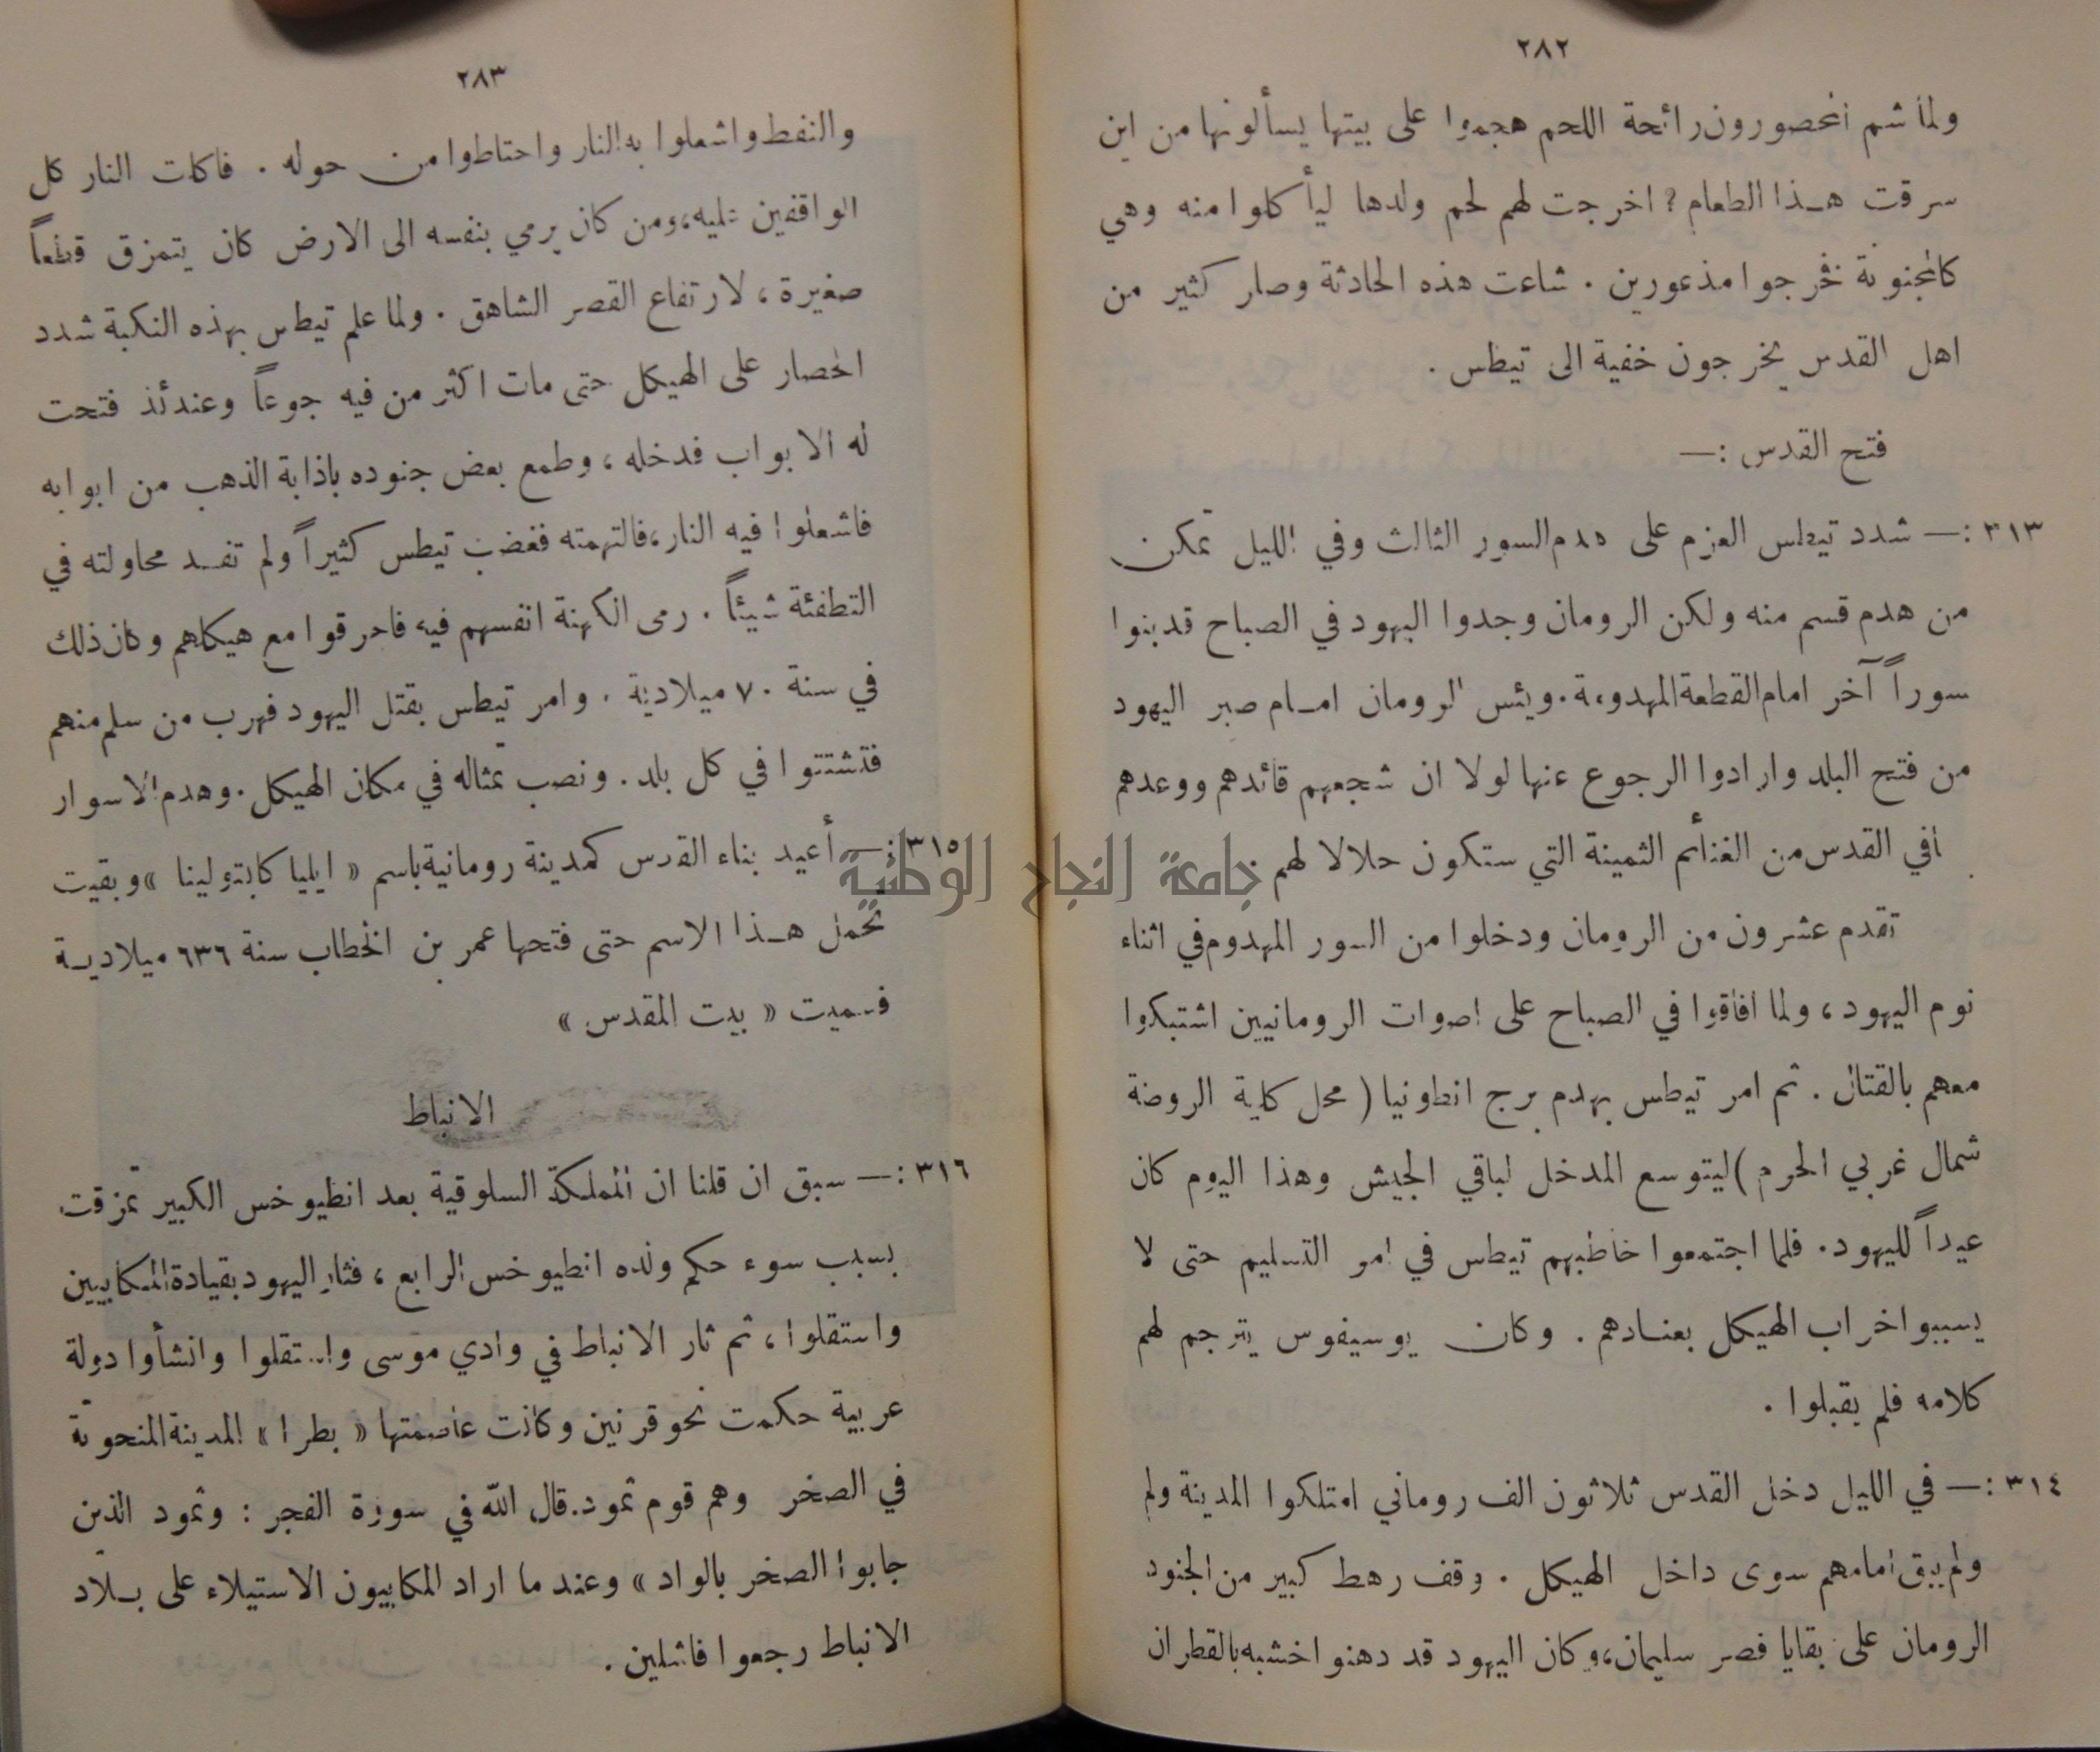 ٢٨٢
ولما شم المحصورون رائحة اللحم هجموا على بيتها يسألونها من اين
سرقت هـذا الطعام ? اخرجت لهم لحم ولدها ليأكلوا منه وهي
كالمجنونة فخرجوا مذعورين . شاعت هذه الحادثة وصار كثير من
اهل القدس يخرجون خفية الى تيطس .
فتح القدس :—
٣١٣ :— شدد تيطس العزم على هدم السور الثالث وفي الليل تمكن
من هدم قسم منه ولكن الرومان وجدوا اليهود في الصباح قد بنوا
سوراً آخر امام القطعة المهدومة . ويئس الرومان امـام صبر اليهود
من فتح البلد وارادوا الرجوع عنها لولا ان شجعهم قائدهم ووعدهم
مافي القدس من الغنائم الثمينة التي ستكون حلالا لهم .
تقدم عشرون من الرومان ودخلوا من السور المهدوم في اثناء
نوم اليهود ، ولما افاقوا في الصباح على اصوات الرومانيين اشتبكوا
معهم بالقتال . ثم امر تيطس بهدم برج انطونيا ( محل كلية الروضة
شمال غربي الحرم ) ليتوسع المدخل لباقي الجيش وهذا اليوم كان
عيداً لليهود . فلما اجتمعوا خاطبهم تيطس في امر التسليم حتى لا
يسببوا خراب الهيكل بعنـادهم . وكان يوسيفوس يترجم لهم
كلامه فلم يقبلوا .
٣١٤ :— في الليل دخل القدس ثلاثون الف روماني امتلكوا المدينة ولم
ولم يبق امامهم سوى داخل الهيكل . وقف رهط كبير من الجنود
الرومان على بقايا قصر سليمان ، وكان اليهود قد دهنوا خشبه بالقطران
٢٨٣
والنفط واشعلوا به النار واحتاطوا من حوله . فاكلت النار كل
الواقفين عليه ، ومن كان يرمي بنفسه الى الارض كان يتمزق قطعاً
صغيرة ، لارتفاع القصر الشاهق . ولما علم تيطس بهذه النكبة شدد
الحصار على الهيكل حتى مات اكثر من فيه جوعاً وعندئذ فتحت
له الابواب فدخله ، وطمع بعض جنوده باذابة الذهب من ابوابه
فاشعلوا فيه النار ، فالتهمته فغضب تيطس كثيراً ولم تفـد محاولته في
التطفئة شيئاً . رمى الكهنة انفسهم فيه فاحرقوا مع هيكلهم وكان ذلك
في سنة ٧٠ ميلادية . وامر تيطس بقتل اليهود فهرب من سلم منهم
فتشتتوا في كل بلد . ونصب تمثاله في مكان الهيكل . وهدم الاسوار
٣١٥ :— أعيد بناء القدس كمدينة رومانية باسم « ايليا كابتولينا » وبقيت
تحمل هـذا الاسم حتى فتحها عمر بن الخطاب سنة ٦٣٦ ميلاديـة
فسميت « بيت المقدس »
الانباط
٣١٦ :— سبق ان قلنا ان المملكة السلوقية بعد انطيوخس الكبير تمزقت
بسبب سوء حكم ولده انطيوخس الرابع ، فثار اليهود بقيادة المكابيين
واستقلوا ، ثم ثار الانباط في وادي موسى واستقلوا وانشأوا دولة
عربية حكمت نحو قرنين وكانت عاصمتها « بطرا » المدينة المنحوتة
في الصخر وهم قوم ثمود . قال الله في سورة الفجر : وثمود الذين
جابوا الصخر بالواد » وعند ما اراد المكابيون الاستيلاء على بـلاد
الانباط رجعوا فاشلين .
جامعة النجاح الوطنية